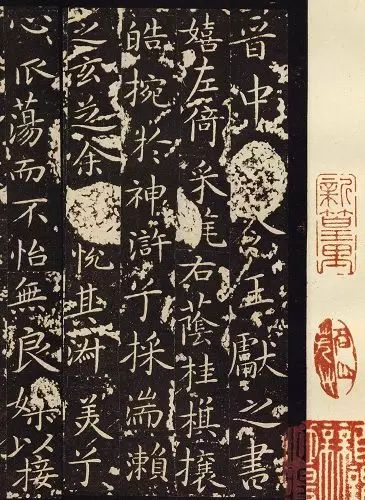 晉中王獻之書
嬉左倚采旄右蔭桂旗攘
皓捥於神滸兮採湍瀨
之玄芝余悅其淑美兮
心振蕩而不怡無良媒以接